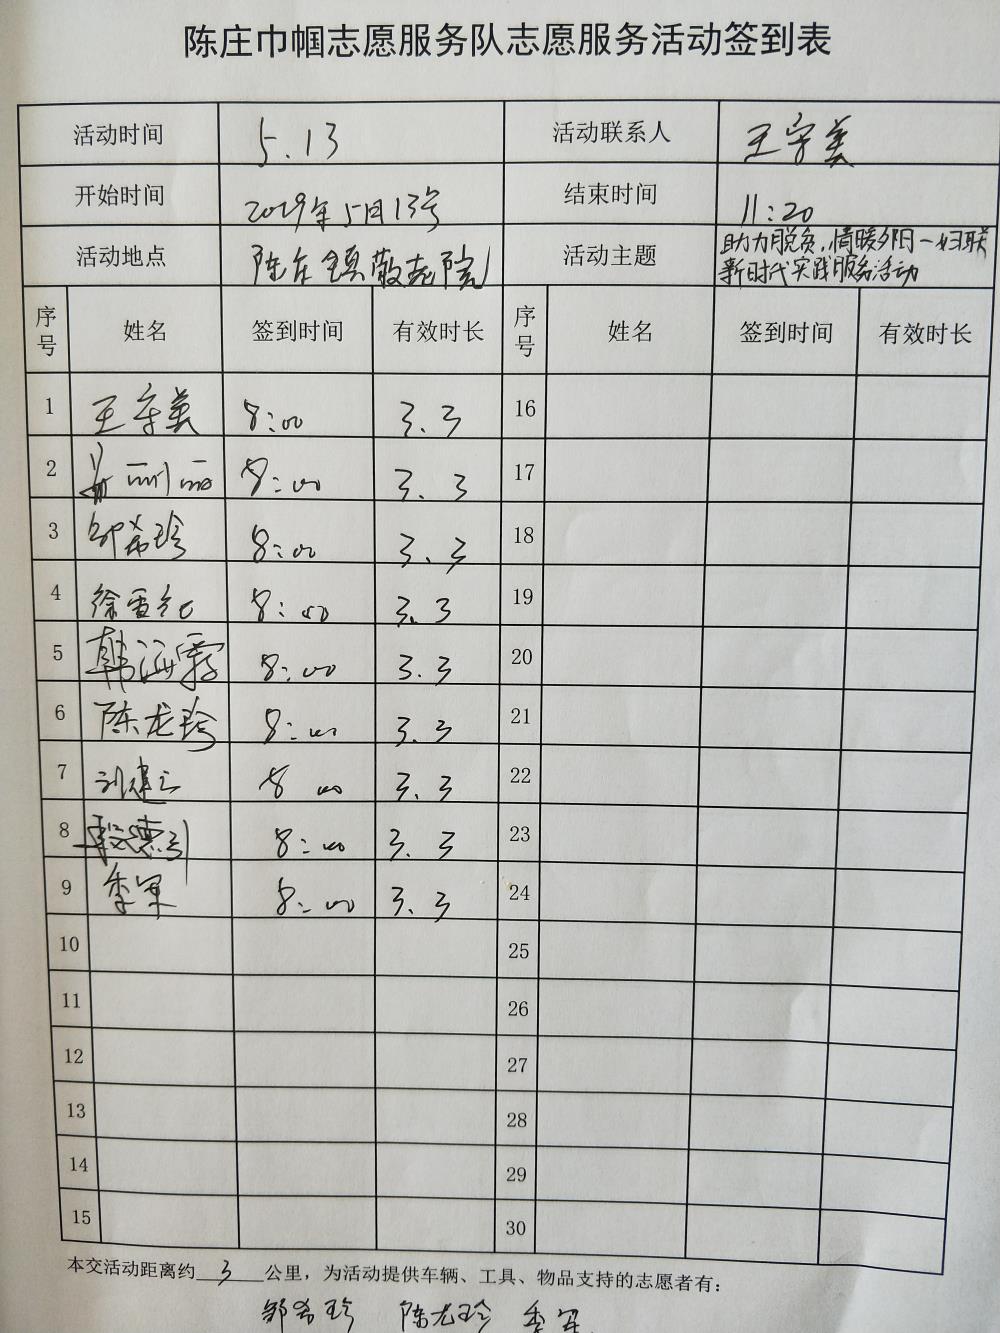 陈庄巾帼志愿服务队志愿服务活动签到表
活动时间 5.13 活动联系人 王守美
开始时间 2019年5月13号 结束时间 11:20
活动地点 陈庄镇敬老院 活动主题 助力脱贫,情暖夕阳—妇联
新时代实践服务活动
序号 姓名 签到时间 有效时长 序号 姓名 签到时间 有效时长
1 王守美 8:00 3.3 16
2 姜丽丽 8:00 3.3 17
3 邹希珍 8:00 3.3 18
4 徐雪红 8:00 3.3 19
5 韩海霞 8:00 3.3 20
6 陈龙珍 8:00 3.3 21
7 刘建 8 00 3.3 22
8 8:00 3.3 23
9 季军 8:00 3.3 24
10 25
11 26
12 27
13 28
14 29
15 30
本交活动距离约 3 公里，为活动提供车辆、工具、物品支持的志愿者有：
邹希珍 陈龙珍 季军